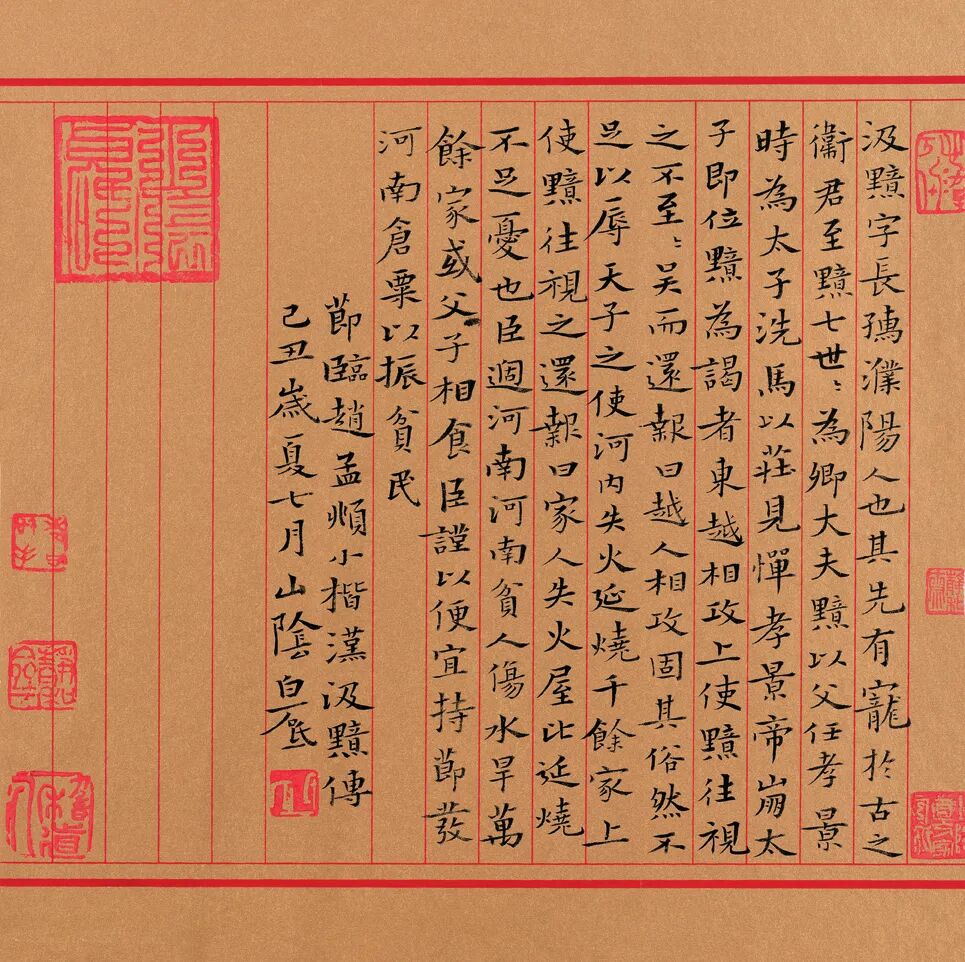 汲黯字長孺濮陽人也其先有寵於古之
衛君至黯七世〻為卿大夫黯以父任孝景
時為太子洗馬以莊見憚孝景帝崩太
子即位黯為謁者東越相攻上使黯往視
之不至〻吳而還報曰越人相攻固其俗然不
足以辱天子之使河内失火延燒千餘家上
使黯往視之還報曰家人失火屋比延燒
不足憂也臣過河南河南貧人傷水旱萬
餘家或父子相食臣謹以便宜持節發
河南倉粟以振貧民
節臨趙孟頫小楷漢汲黯傳
己丑歲夏七月山陰白